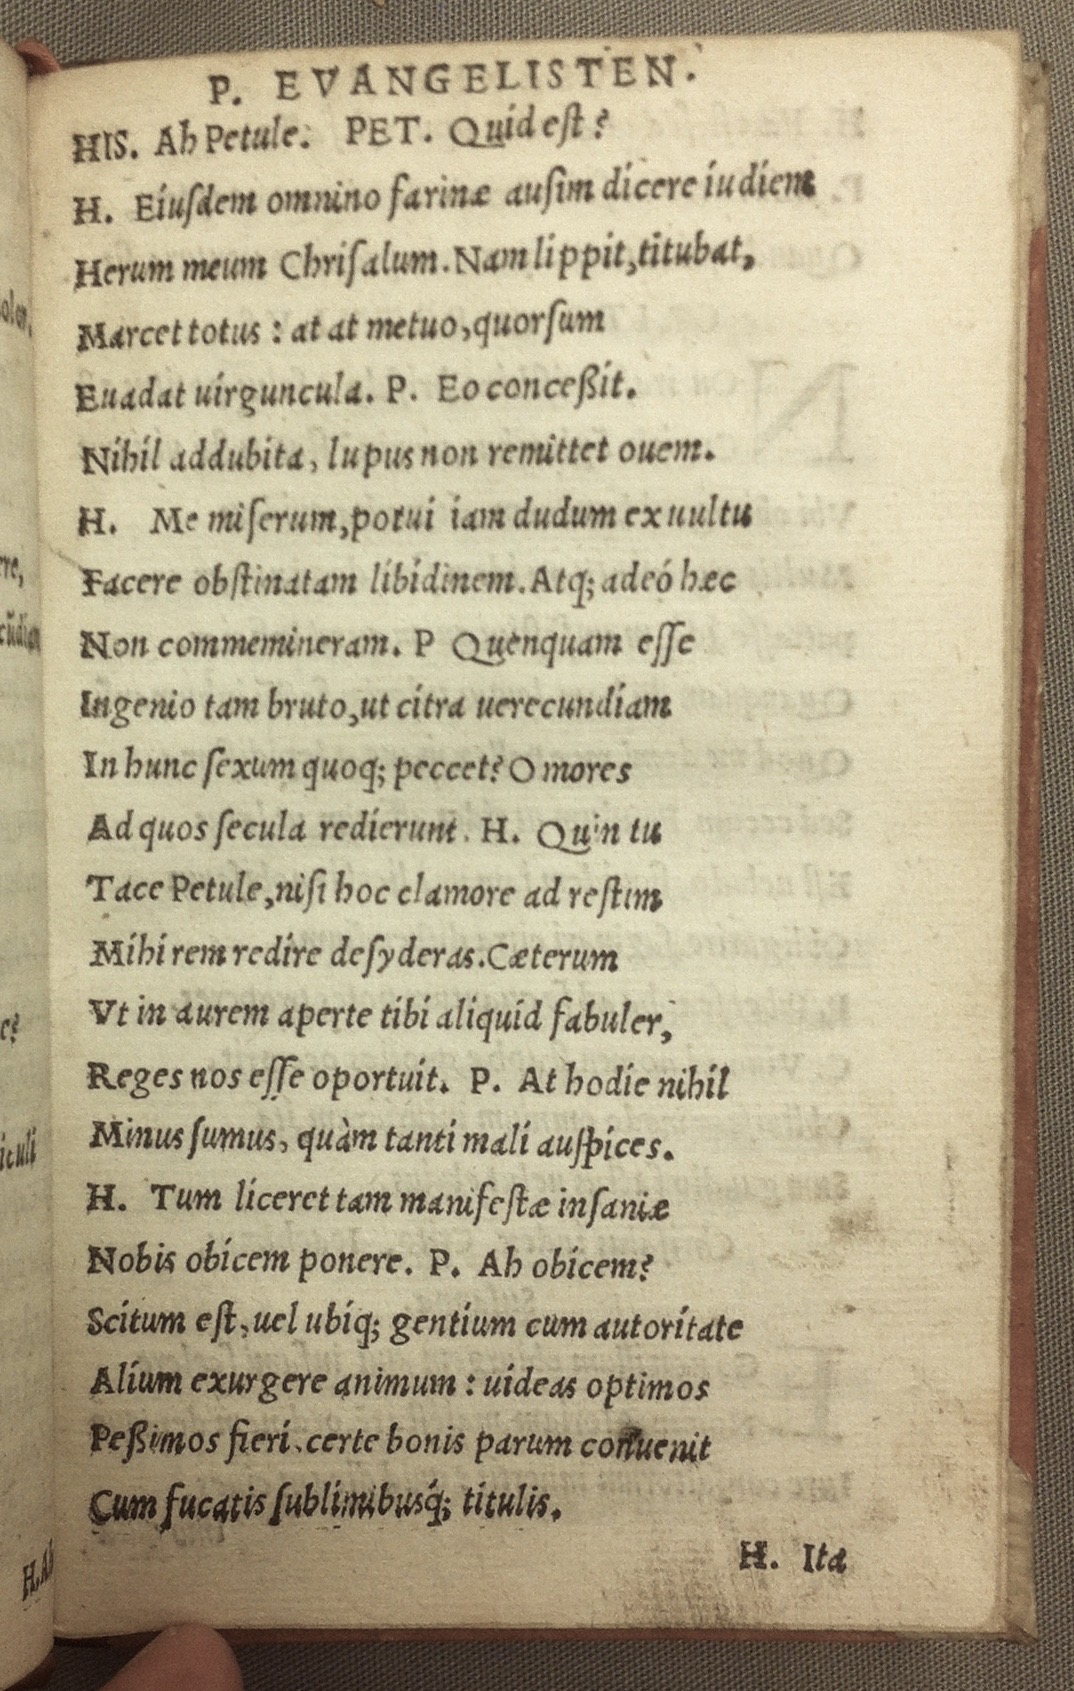 P. EVANGELISTEN.
HIS. Ah Petule. PET. Quid eſt?
H. Eiuſdem omnino farinæ auſim dicere iudicem
Herum meum Chriſalum. Nam lippit, titubat,
Marcet totus: at at metuo, quorſum
Euadat uirguncula. P. Eo conceßit.
Nihil addubita, lupus non remittet ouem.
H. Me miſerum, potui iam dudum ex uultu
Facere obſtinatam libidinem. Atq; adeó hæc
Non commemineram. P Quenquam eſſe
Ingenio tam bruto, ut citra uerecundiam
In hunc ſexum quoq; peccet? O mores
Ad quos ſecula redierunt. H. Quin tu
Tace Petule, niſi hoc clamore ad reſtim
Mihi rem redire deſyderas. Cæterum
Vt in aurem aperte tibi aliquid fabuler,
Reges nos eſſe oportuit. P. At hodie nihil
Minus ſumus, quàm tanti mali auſpices.
H. Tum liceret tam manifeſtæ inſaniæ
Nobis obicem ponere. P. Ah obicem?
Scitum eſt, uel ubiq; gentium cum autoritate
Alium exurgere animum: uideas optimos
Peßimos fieri. certe bonis parum conuenit
Cum fucatis ſublimibusq́; titulis.
H. Ita